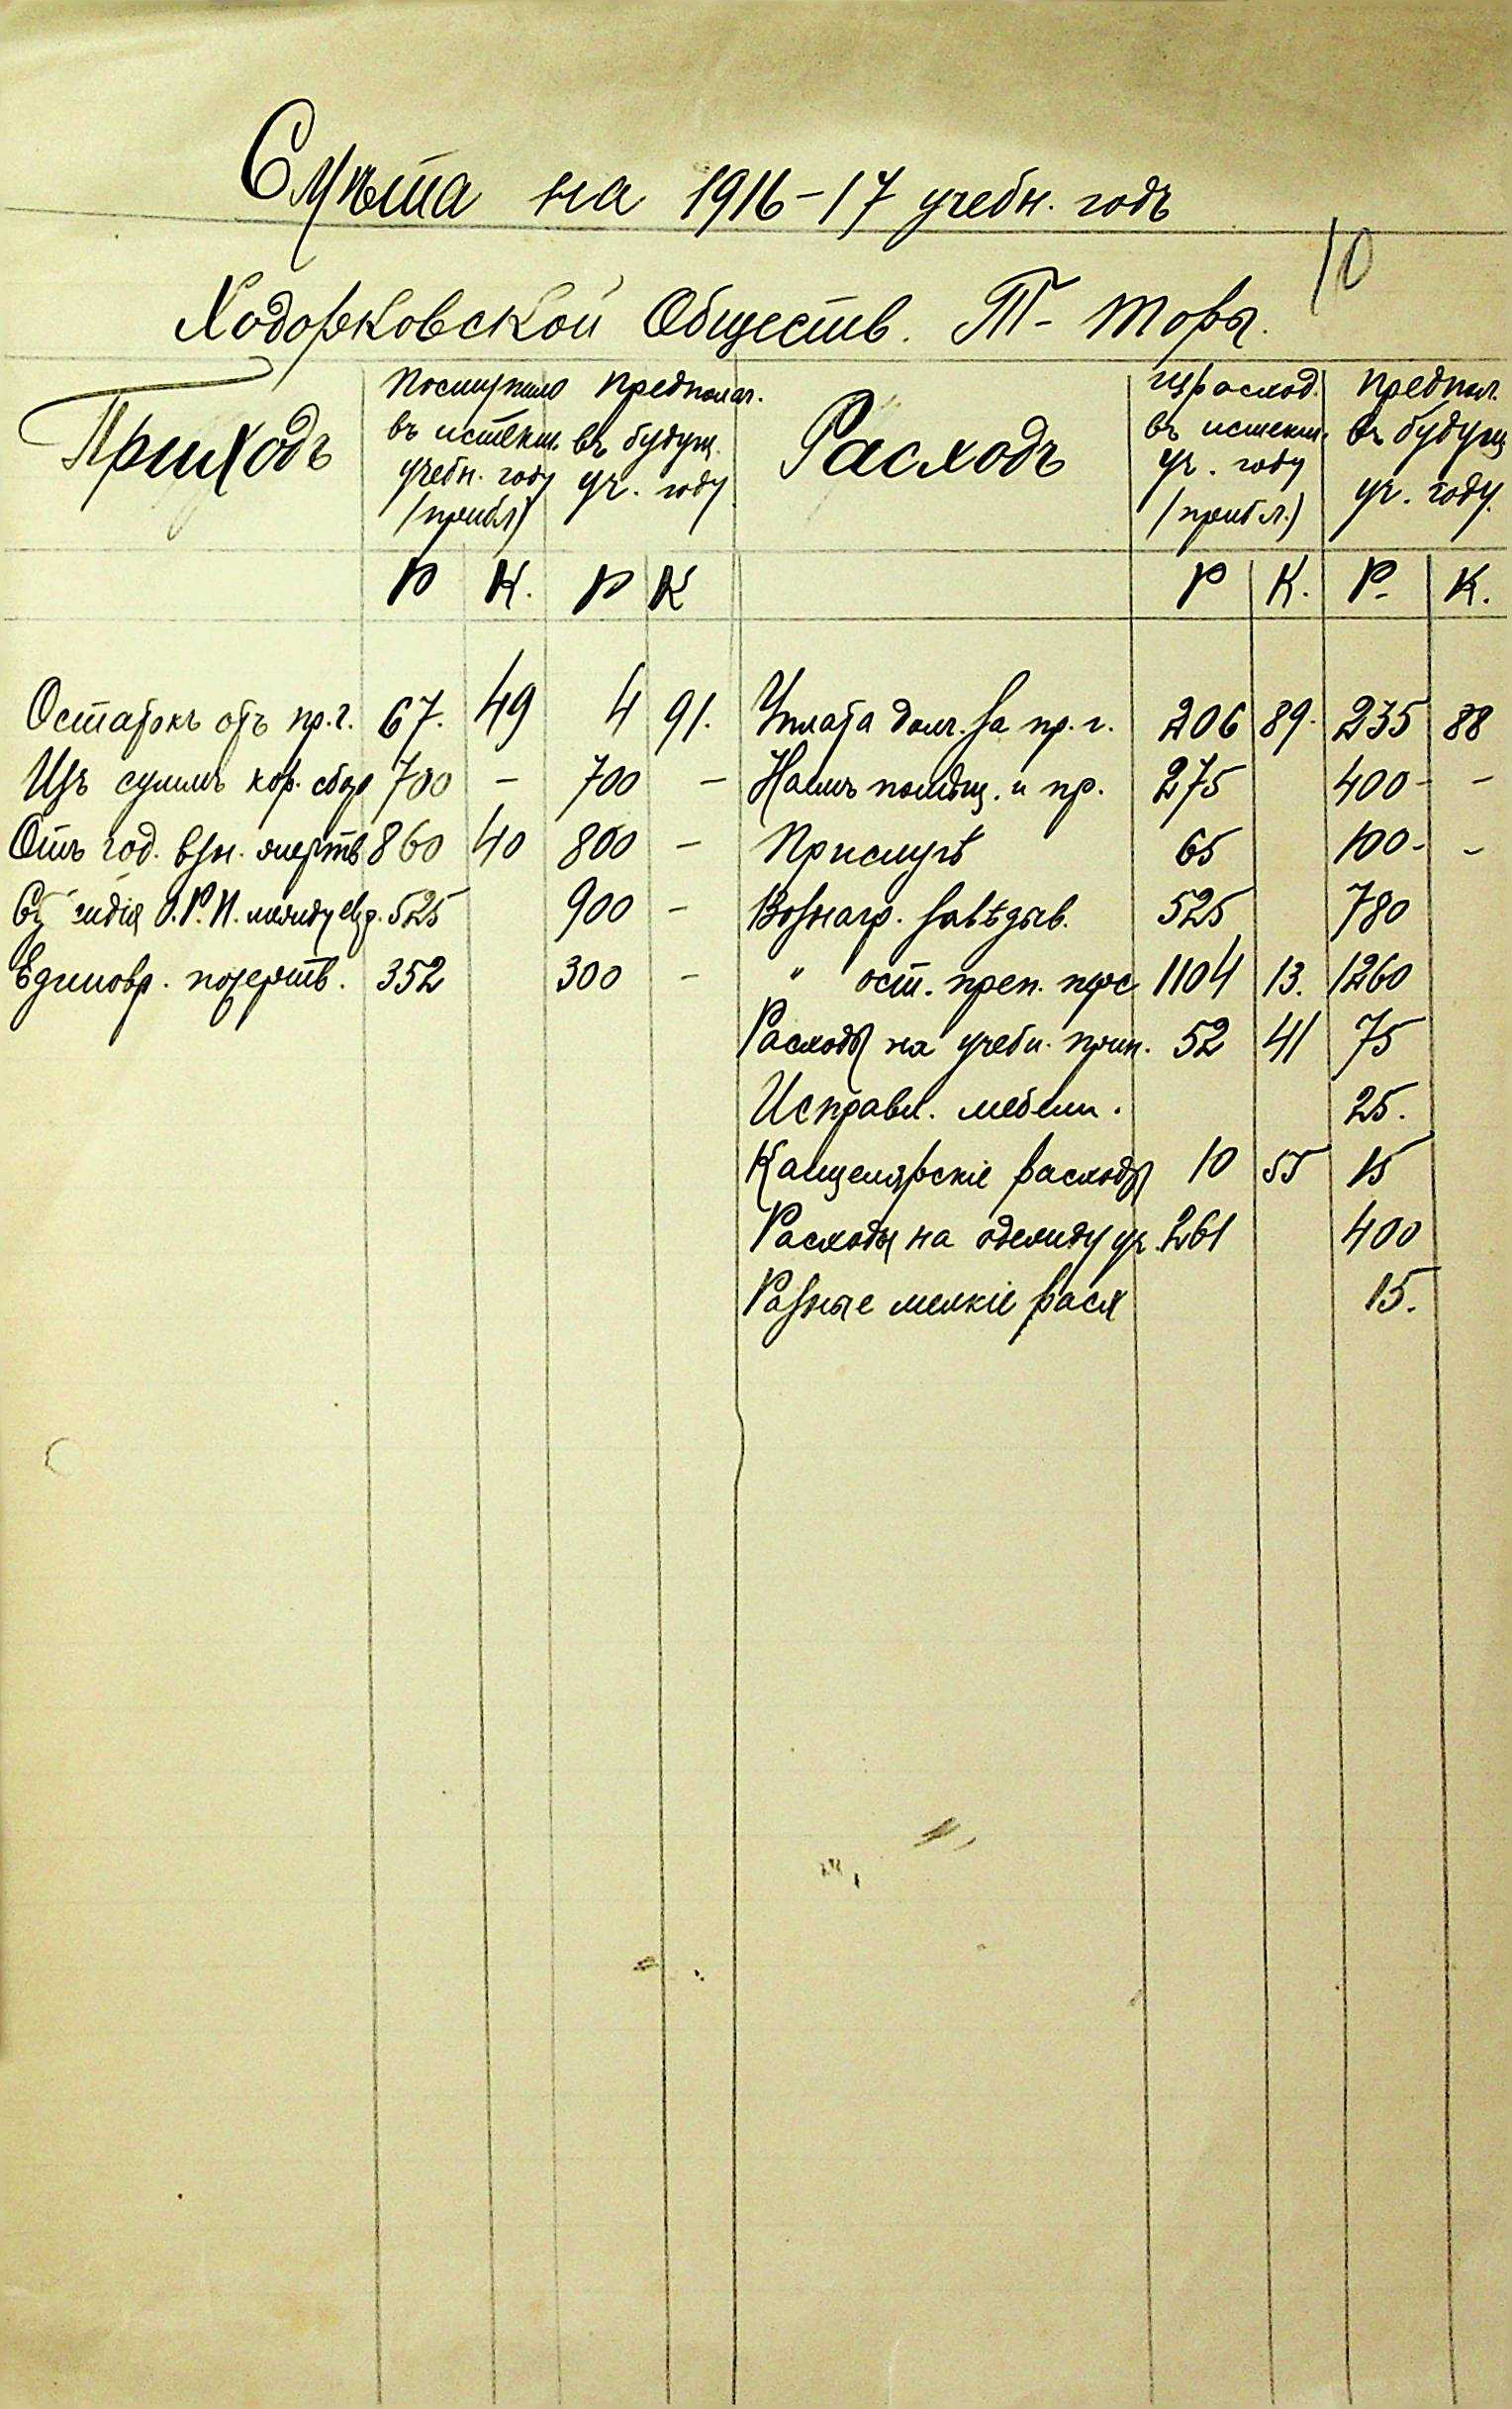 Смѣта на 1916-17 учебн. годъ
10
Ходорковской Обществ. Т- Торы.
Приходъ
Поступило
въ истекш.
учебн. году
/прибл/
Предполаг.
въ будущ.
уч. году
Расходъ
Израсход.
въ истекш.
уч. году
/прибл./
Предпол.
въ будущ
уч. году.
Р К. Р К Р К. Р. К.
Остатокъ отъ пр. г. 67. 49 4 91. Уплата долг. за пр. г. 206 89. 235 88
Изъ суммъ кор. сбора 700 - 700 - Наемъ помѣщ. и пр. 275 400- -
Отъ год. взн. жертв 860 40 800 - Прислугѣ 65 100- -
О.Р.П. между евр. 525 900 - Вознагр. завѣдыв. 525 780
Единовр. пожертв. 352 300 - " ост. преп. перс 1104 13. 1260
Расходы на учебн. прин. 52 41 75
Исправл. мебели. 25.
Канцелярскіе расходы 10 55 15
Расходы на одежду уч. 261 400
Разные мелкіе расх 15.